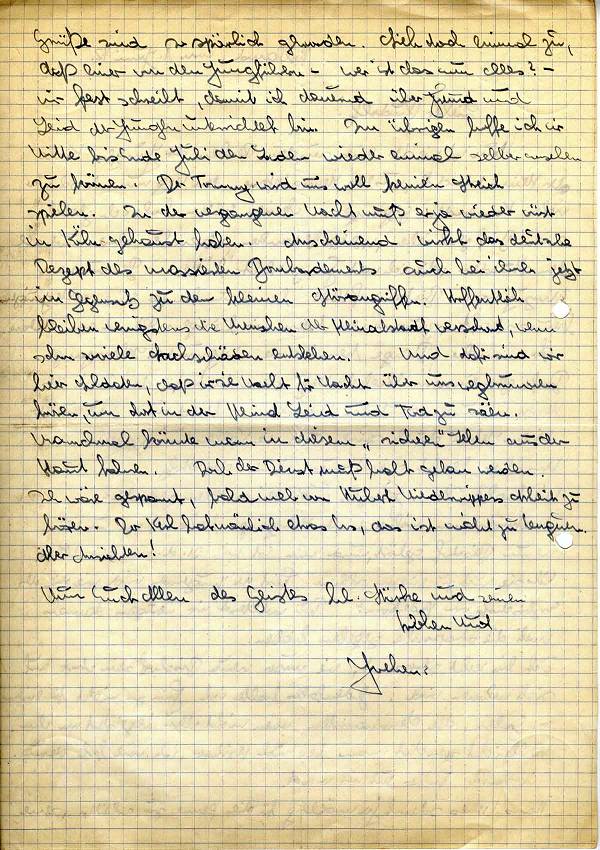 Grüße sind so spärlich geworden. Sieh doch einmal zu,
daß einer von den Jungführern – wer ist das nun alles? –
mir fest schreibt, damit ich dauernd über Freud und
Leid der Jungen unterrichtet bin. Im übrigen hoffe ich ca
Mitte bis Ende Juli den Laden wieder einmal selber ansehen
zu können. Der Tommy wird uns wohl keinen Streich
spielen. In der vergangenen Nacht muß er ja wieder wüst
in Köln gehaust haben. Anscheinend wirkt das deutsche
Rezept des massierten Bombardements auch bei ihnen jetzt
im Gegensatz zu den kleinen Störangriffen. Hoffentlich
bleiben wenigstens die Menschen der Heimatstadt verschont, wenn
schon soviele Sachschäden entstehen. Und dafür sind wir
hier Soldaten, daß wir sie Nacht für Nacht über uns wegbrummen
hören, um dort in der Heimat Leid und Tod zu säen.
Manchmal könnte man in diesem „sicheren" Leben aus der
Haut fahren. Doch der Dienst muß halt getan werden.
Ich wäre gespannt, bald mal von Hubert Streit zu
hören. Der Kerl hat nämlich etwas los, das ist nicht zu leugnen.
Aller Ansichten!
Nun Euch Allen des Geistes hl. Stärke und seinen
frohen Mut
Jochen.